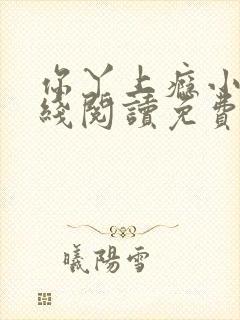 你丫上癮小
綫閱讀免費
曦陽雪